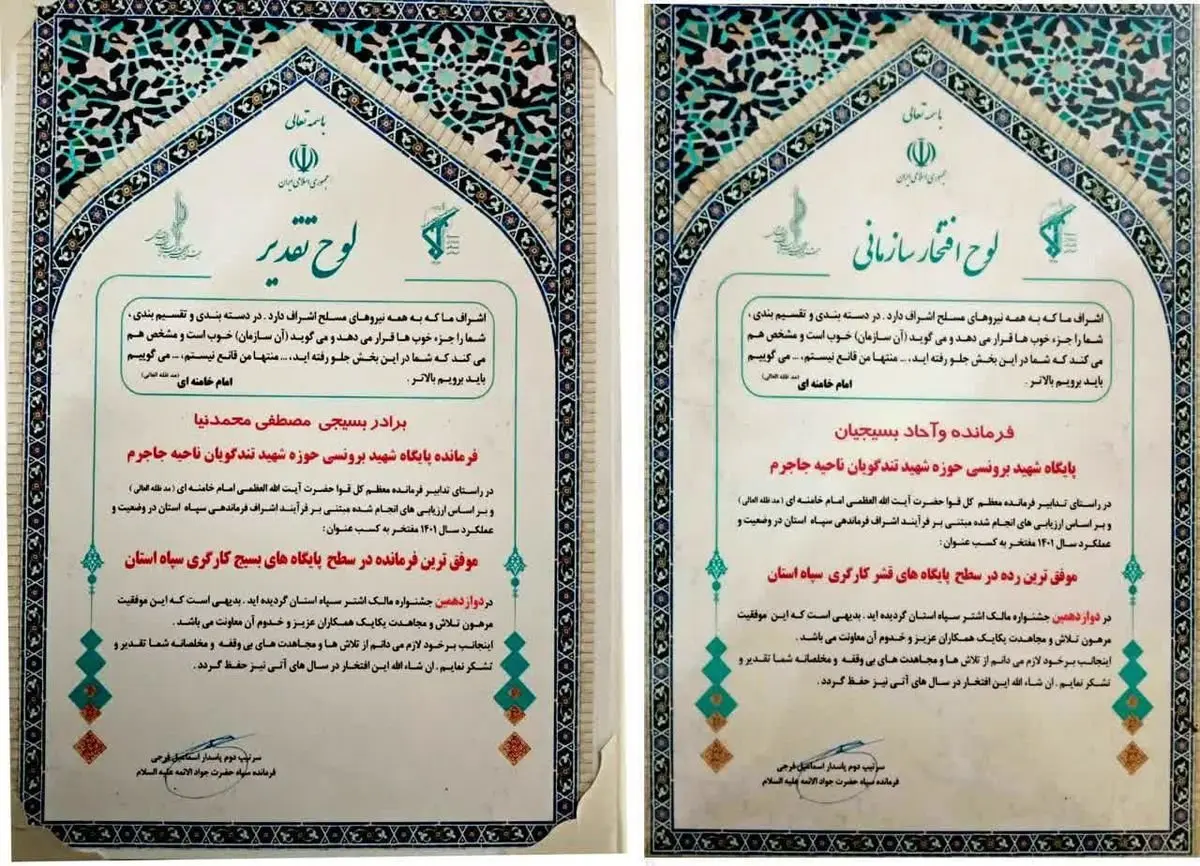 باسمه تعالی
جمهوری اسلامی ایران
لوح تقدیر
اشراف ما که به همه نیروهای مسلح اشراف دارد . در دسته بندی و تقسیم بندی ،
شما را جزء خوب ها قرار می دهد و می گوید (آن سازمان) خوب است و مشخص هم
می کند که شما در این بخش جلو رفته اید، ... منتها من قانع نیستم، ... می گوییم
باید برویم بالاتر .
امام خامنه ای (مد ظله العالی)
برادر بسیجی مصطفی محمدنیا
فرمانده پایگاه شهید برونسی حوزه شهید تندگویان ناحیه جاجرم
در راستای تدابیر فرمانده معظم کل قوا حضرت آیت الله العظمی امام خامنه ای ( مد ظله العالی )
و بر اساس ارزیابی های انجام شده مبتنی بر فرآیند اشراف فرماندهی سپاه استان در وضعیت و
عملکرد سال ۱۴۰۱ مفتخر به کسب عنوان :
موفق ترین فرمانده در سطح پایگاه های بسیج کارگری سپاه استان
در دوازدهمین جشنواره مالک اشتر سپاه استان گردیده اید . بدیهی است که این موفقیت
مرهون تلاش و مجاهدت یکایک همکاران عزیز و خدوم آن معاونت می باشد .
اینجانب برخود لازم می دانم از تلاش ها و مجاهدت های بی وقفه و مخلصانه شما تقدیر و
تشکر نمایم . ان شاء الله این افتخار در سال های آتی نیز حفظ گردد .
سرتیپ دوم پاسدار اسماعیل فرجی
فرمانده سپاه حضرت جواد الائمه علیه السلام
باسمه تعالی
جمهوری اسلامی ایران
لوح افتخار سازمانی
اشراف ما که به همه نیروهای مسلح اشراف دارد . در دسته بندی و تقسیم بندی ،
شما را جزء خوب ها قرار می دهد و می گوید (آن سازمان) خوب است و مشخص هم
می کند که شما در این بخش جلو رفته اید، ... منتها من قانع نیستم، ... می گوییم
باید برویم بالاتر .
امام خامنه ای (مد ظله العالی)
فرمانده وآحاد بسیجیان
پایگاه شهید برونسی حوزه شهید تندگویان ناحیه جاجرم
در راستای تدابیر فرمانده معظم کل قوا حضرت آیت الله العظمی امام خامنه ای ( مد ظله العالی )
و بر اساس ارزیابی های انجام شده مبتنی بر فرآیند اشراف فرماندهی سپاه استان در وضعیت و
عملکرد سال ۱۴۰۱ مفتخر به کسب عنوان :
موفق ترین رده در سطح پایگاه های قشر کارگری سپاه استان
در دوازدهمین جشنواره مالک اشتر سپاه استان گردیده اید . بدیهی است که این موفقیت
مرهون تلاش و مجاهدت یکایک همکاران عزیز و خدوم آن معاونت می باشد .
اینجانب برخود لازم می دانم از تلاش ها و مجاهدت های بی وقفه و مخلصانه شما تقدیر و
تشکر نمایم . ان شاء الله این افتخار در سال های آتی نیز حفظ گردد .
سرتیپ دوم پاسدار اسماعیل فرجی
فرمانده سپاه حضرت جواد الائمه علیه السلام